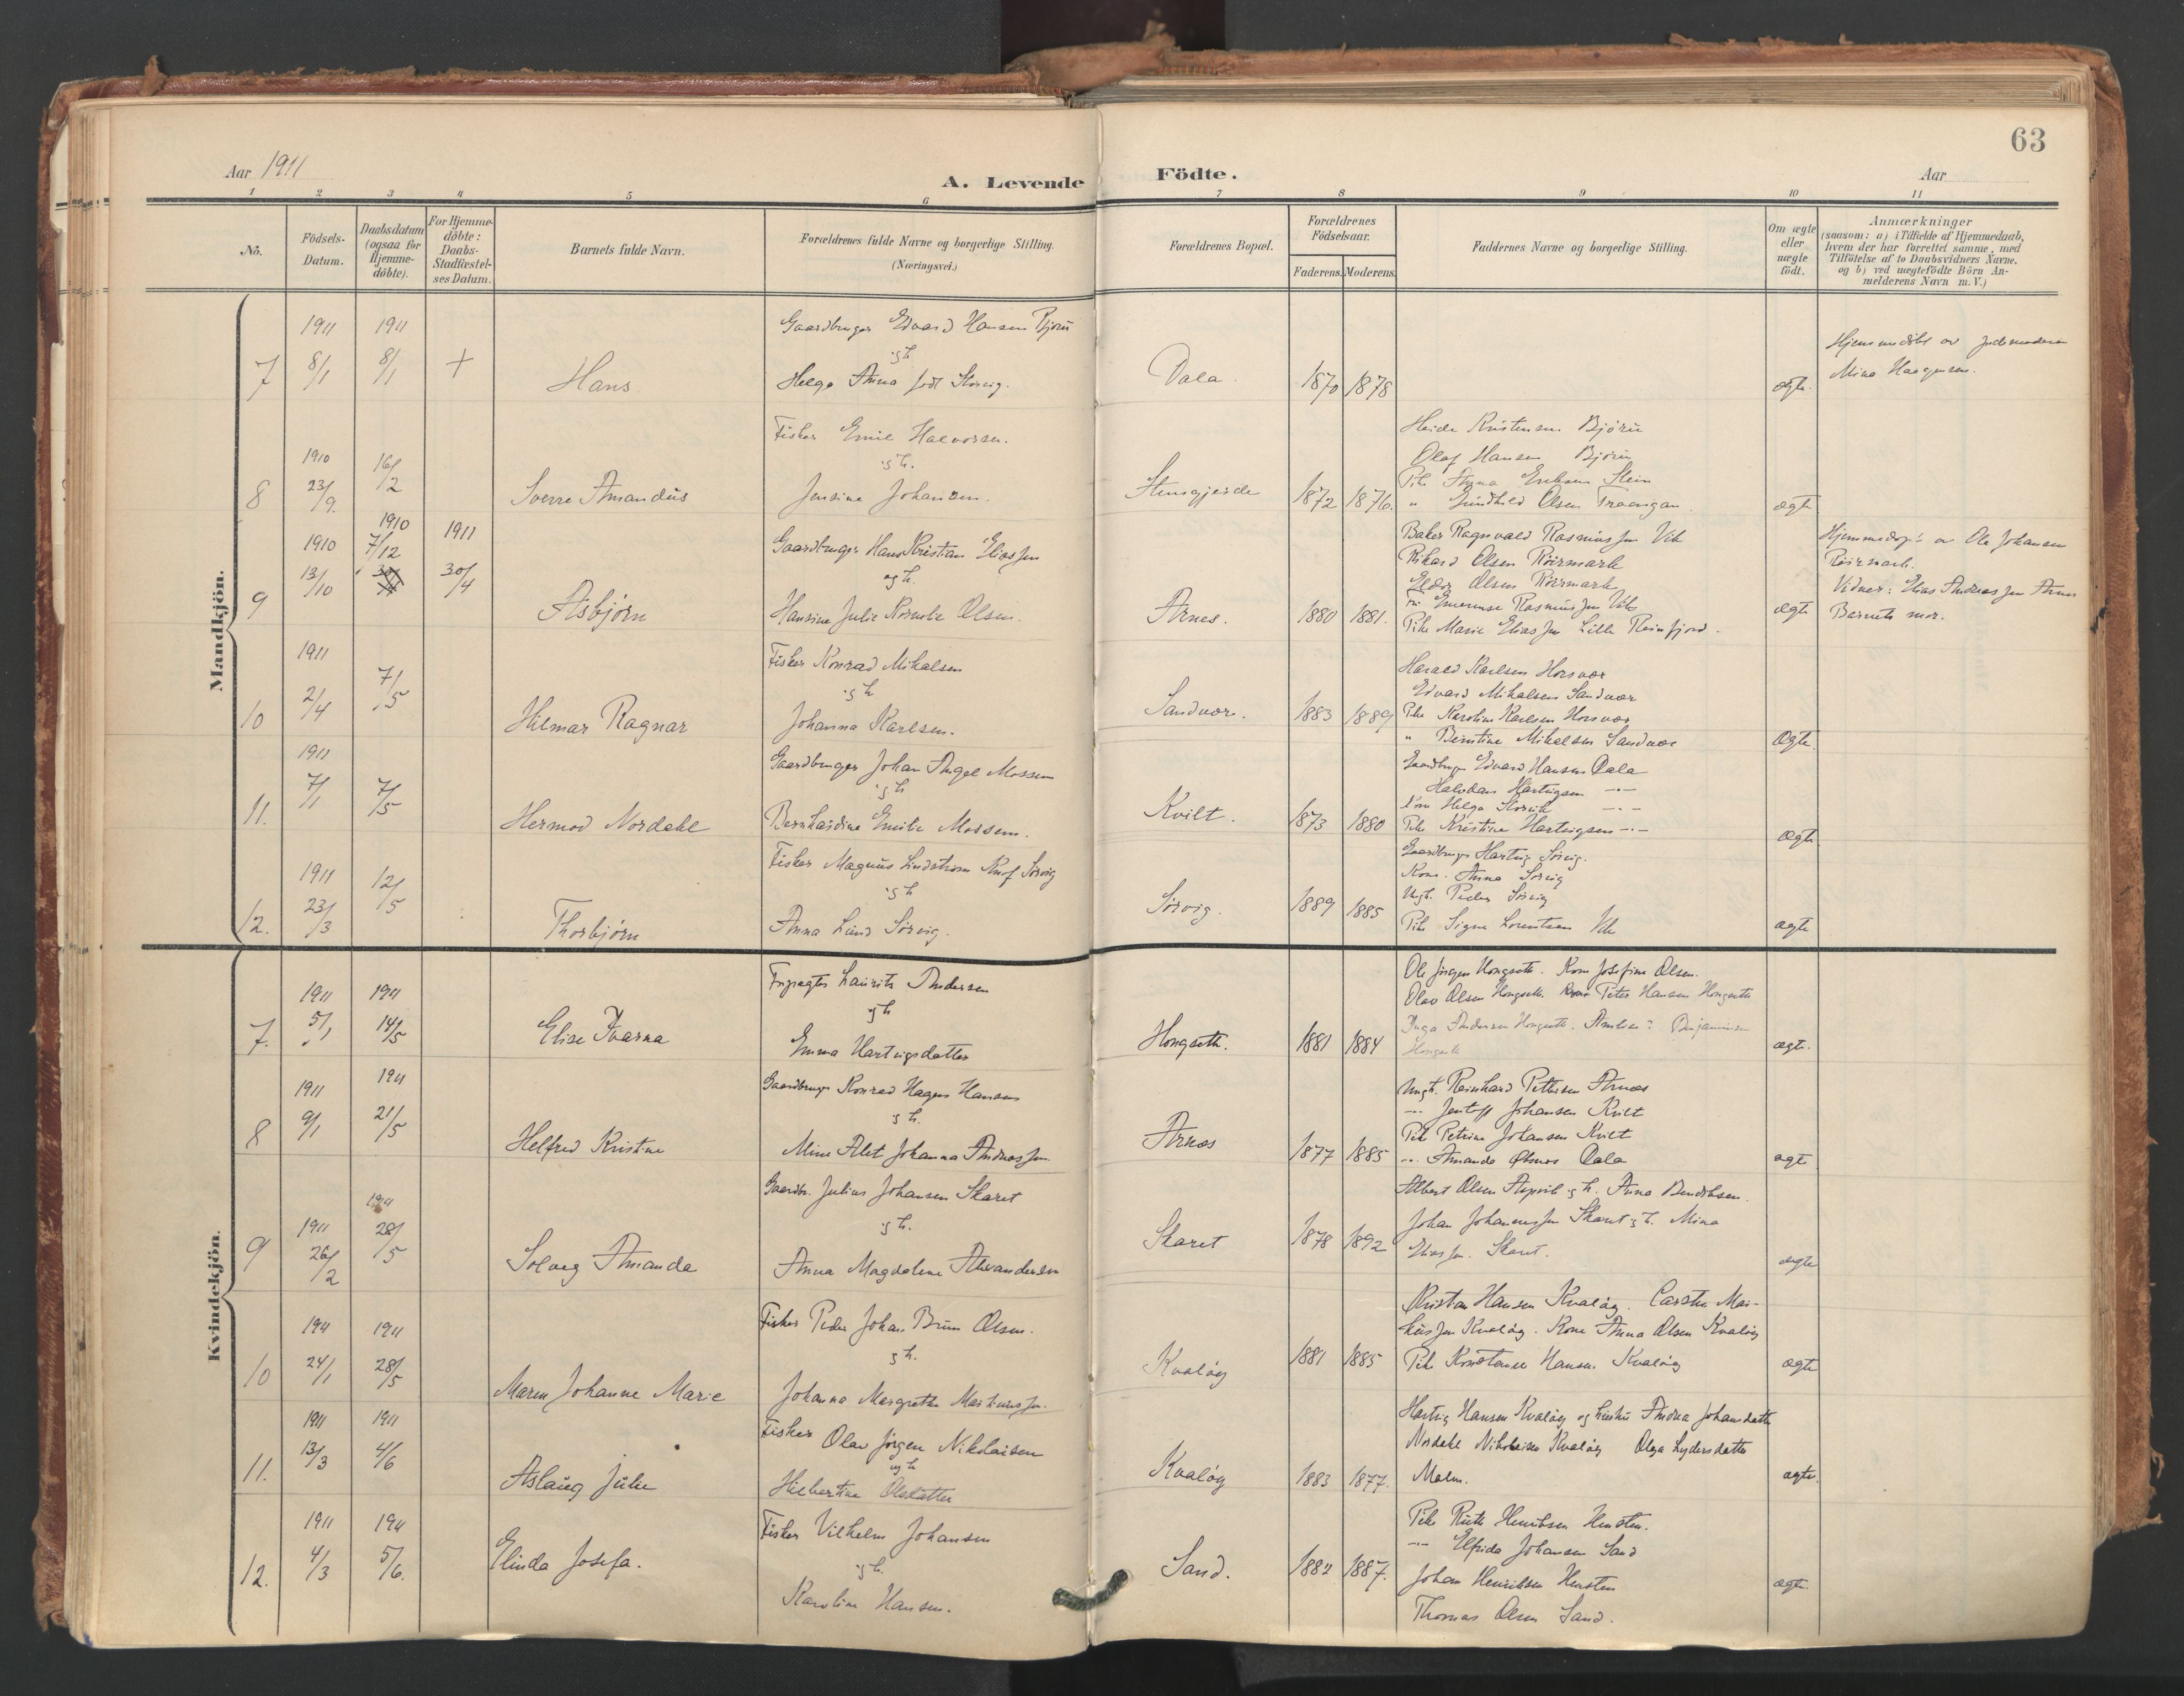 63
Aar 1911
A. Levende Födte.
Aar
1 2 3 4 5 6 7 8 9 10 11
No.
Födsels-Datum.
Daabsdatum (ogsaa for Hjemme-döbte).
For Hjemme-döbte: Daabs-Stadfæstel-ses Datum.
Barnets fulde Navn.
Forældrenes fulde Navne og borgerlige Stilling.
(Næringsvei.)
Forældrenes Bopæl.
Forældrenes Födselsaar.
Faderens. Moderens.
Faddernes Navne og borgerlige Stilling.
Om ægte eller uægte födt.
Anmærkninger
(saasom: a) i Tilfælde af Hjemmedaab, hvem der har forrettet samme, med Tilföielse af to Daabsvidners Navne, og b) ved uægtefödte Börn An-melderens Navn m. V.)
Mandkjön.
7 1911 8/1 1911 8/1 + Hans
Gaardbruger Edvard Hansen
Helga Anna født
Dala. 1870 1878 ægte.
Hjemmedøbt av Jordmoderen
Mina
8 1910 23/9. 16/2 Sverre Amandus
Fisker Emil Halvorsen.
Jensine Johansen.
Stensgjerde 1872 1876. ægte
Kristensen Bjørü
Olaf Hansen Bjørü
Pike Eriksen Stein
" Olsen
9 1910 13/10 1910 7/12 1911 30/4 Asbjørn
Gaardbruger Hans Kristian Eliassen
og h.
Hansine Julie Olsen.
Arnes. 1880 1881. ægte
Baker Ragnvald Rasmussen Vik
Rikard Olsen Röirmark
Olsen Röirmark
Rasmussen Vik
Pike Marie Eliassen Lille Reinfjord.
Hjemmedøpt av Ole Johansen
Röirmark.
Vidner: Elias Andreassen Arnes
Barnets mor.
10 1911 2/4 7/5 Hilmar Ragnar
Fisker Konrad Mikalsen
og h
Johanna Karlsen.
Sandvær. 1883 1889 Ægte.
Harald Karlsen Horsvær
Edvard Mikalsen Sandvær
Pike Karoline Karlsen Horsvær
" Mikalsen Sandvær
11. 1911 7/1 7/5 Hermod Nordahl
Gaardbruger Johan Angel Mossem
og h
Bernhardine Emilie Mossem.
Kvilt. 1873 1880 ægte
Gaardbruger Edvard Hansen Dala
Halvdan Hartvigsen -"-
Kone Helga -"-
Pike Kristine Hartvigsen -"-
12. 1911 23/3 12/5 Thorbjørn
Fisker Magnus Lindstrøm Sörvig
og h
Anna Lund Sörvig.
Sörvig. 1889 1885 ægte
Gaardbruger Hartvig Sörvig.
Kone. Anna Sörvig
Ungk. Peder Sörvig
Pike Signe Lorentsen Vik
Kvindekjön.
7. 1911 5/1 1911 14/5 Elise Ivarna
Laurits Andersen
og h
Emma Hartvigsdatter
Hongseth. 1881 1884 ægte.
Ole Jørgen Hongseth. Kone Josefine Olsen.
Olav Olsen Hongseth. Peter Hansen Hongseth
Inga Andersen Hongseth. Benjaminsen
Hongseth
8 1911 9/1 1911 21/5 Helfred Kristine
Gaardbruger Konrad Hagen Hansen
og h.
Mine Alet Johanna Andreassen
Arnes 1877 1885 ægte
Ungk. Reinhard Pettersen Arnes
-"- Jentoft Johansen Kvilt
Pike Petrine Johansen Kvilt
-"- Amanda Dala
9 1911 26/2 1911 28/5 Solveig Amanda
Gaardbr. Julius Johansen Skaret
og h.
Anna Magdalene Alexandersen
Skaret 1878 1892 ægte
Albert Olsen og h. Anna Bendiksen.
Johan Johannessen Skaret og h. Mina
Eliassen Skaret.
10 1911 24/1 1911 28/5 Maren Johanne Marie
Fisker Peder Johan Bruun Olsen.
og h.
Johanna Margrethe Markussen.
Kvaløy 1881 1885 ægte
Kristian Hansen Kvaløy. Carsten Mar-
kussen Kvaløy. Kone Anna Olsen Kvaløy
Pike Konstanse Hansen Kvaløy
11. 1911 13/3 1911 4/6 Aslaug Julie
Fisker Olav Jørgen Nikolaisen
og h
Hilbertine Olsdatter
Kvaløy 1883 1877. ægte.
Hartvig Hansen Kvaløy og hustru Andrea Johansdatter
Nordahl Nikolaisen Kvaløy Olga Lydersdatter
Malm.
12. 1911 4/3 1911 5/6. Elinda Josefa.
Fisker Vilhelm Johansen
og h.
Karoline Hansen.
Sand. 1882 1887. ægte.
Pike Ruth Henriksen Horsten.
-"- Elfrida Johansen Sand
Johan Henriksen Horsten
Thomas Olsen Sand.